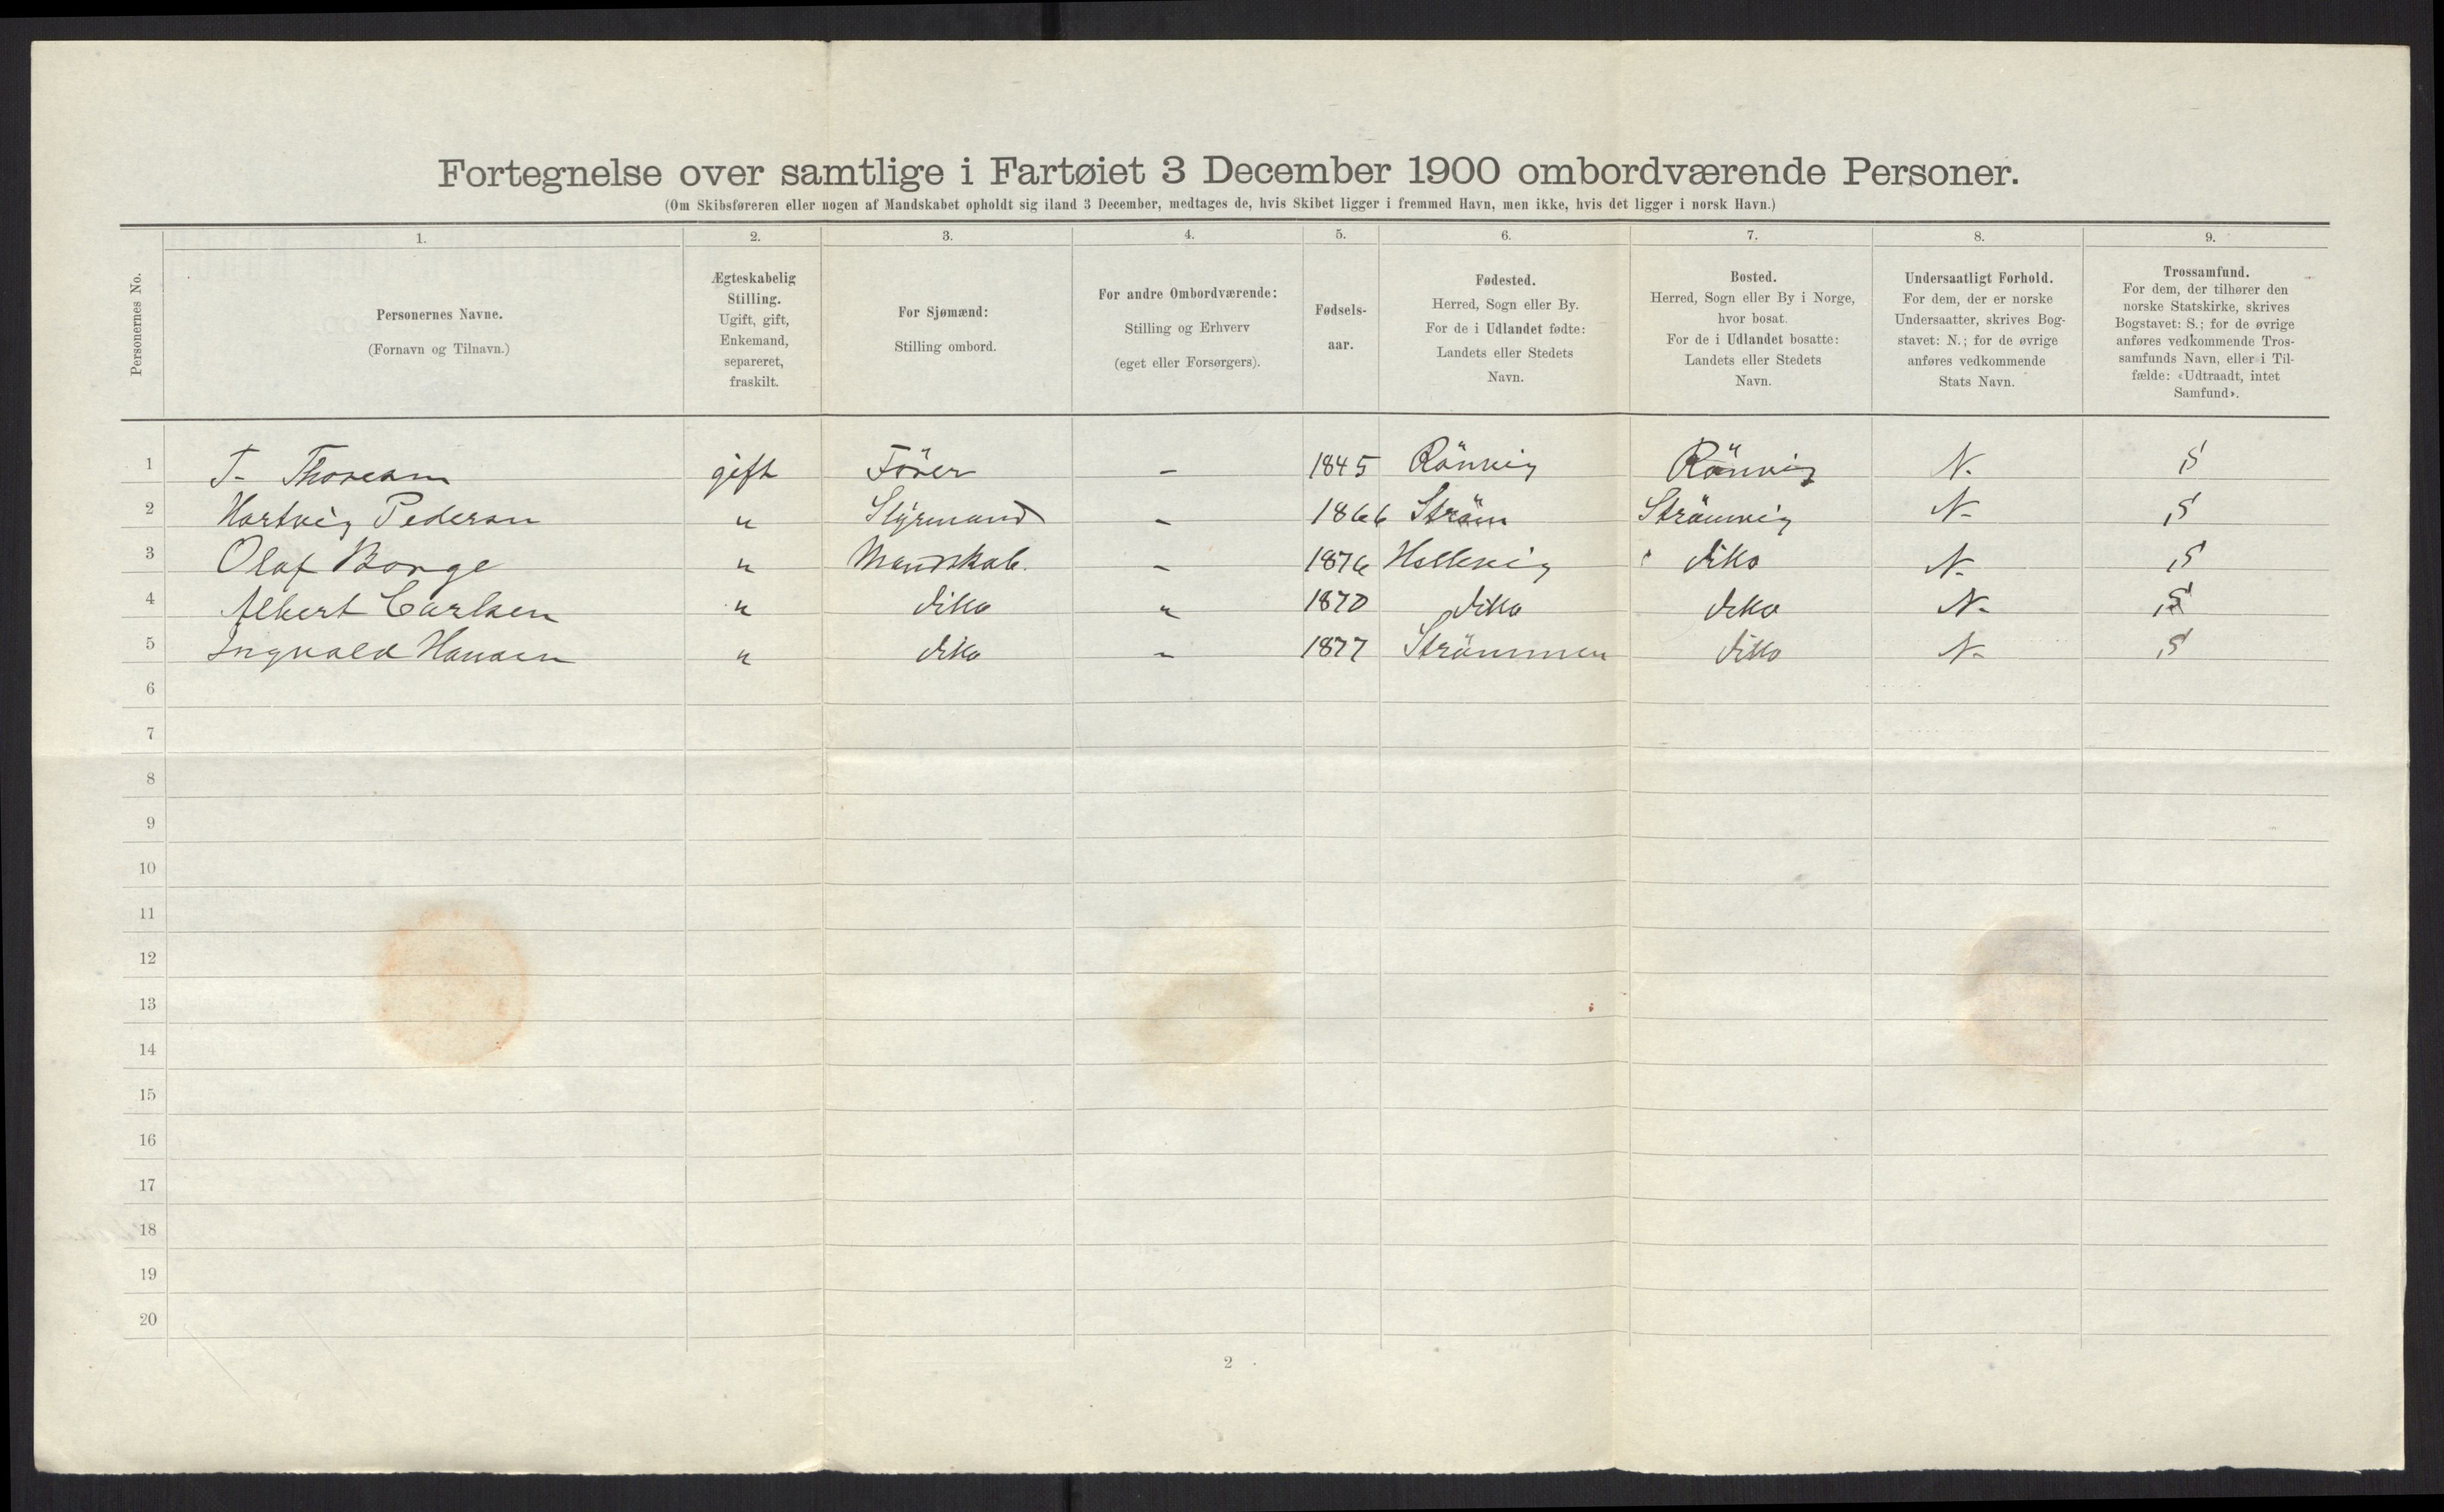 Fortegnelse over samtlige i Fartøiet 3 December 1900 ombordværende Personer.
(Om Skibsføreren eller nogen af Mandskabet opholdt sig iland 3 December, medtages de, hvis Skibet ligger i fremmed Havn, men ikke, hvis det ligger i norsk Havn.)
1. 2. 3. 4. 5. 6. 7. 8. 9.
Personernes No.
Personernes Navne.
(Fornavn og Tilnavn.)
Ægteskabelig
Stilling.
Ugift, gift,
Enkemand,
separeret,
fraskilt.
For Sjømænd:
Stilling ombord.
For andre Ombordværende:
Stilling og Erhverv
(eget eller Forsørgers).
Fødsels-
aar.
Fødested.
Herred, Sogn eller By.
For de i Udlandet fødte:
Landets eller Stedets
Navn.
Bosted.
Herred, Sogn eller By i Norge,
hvor bosat.
For de i Udlandet bosatte:
Landets eller Stedets
Navn.
Undersaatligt Forhold.
For dem, der er norske
Undersaatter, skrives Bog-
stavet: N.; for de øvrige
anføres vedkommende
Stats Navn.
Trossamfund.
For dem, der tilhører den
norske Statskirke, skrives
Bogstavet: S.; for de øvrige
anføres vedkommende Tros-
samfunds Navn, eller i Til-
fælde: «Udtraadt, intet
Samfund».
1 T. gift Förer - 1845 Rönvig Rönvig N. S
2 Hartvig Pedersen " Styrmand - 1866 Ström Strömvig N- S
3 Olaf Borge " Mandskab. - 1876 Hellevig ditto N- S
4 Albert Carlsen " ditto " 1870 ditto ditto N- S
5 Ingvald Hansen " ditto - 1877 Strömmen ditto N- S
6
7
8
9
10
11
12
13
14
15
16
17
18
19
20
2